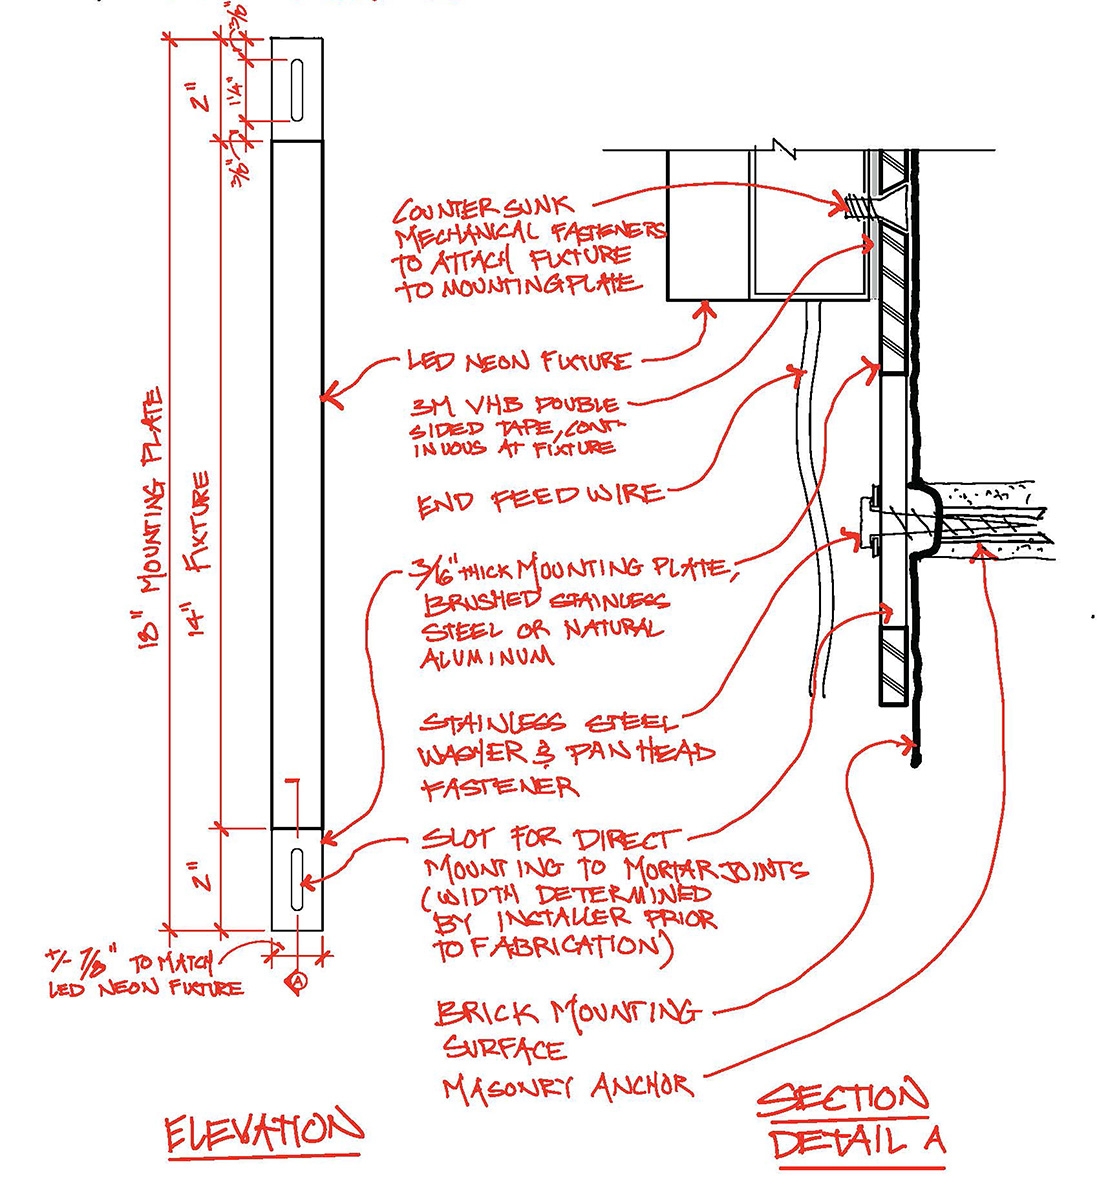 3/6"
2"
1 1/4"
3/6"
18" MOUNTING PLATE
14" FIXTURE
2"
+/- 7/8" TO MATCH
LED NEON FIXTURE
A
ELEVATION
COUNTER SUNK
MECHANICAL FASTENERS
TO ATTACH FIXTURE
TO MOUNTING PLATE
LED NEON FIXTURE
3M VHB DOUBLE
SIDED TAPE, CONT-
INUOUS AT FIXTURE
END FEED WIRE
3/16" THICK MOUNTING PLATE,
BRUSHED STAINLESS
STEEL OR NATURAL
ALUMINUM
STAINLESS STEEL
WASHER & PAN HEAD
FASTENER
SLOT FOR DIRECT
MOUNTING TO MORTAR JOINTS
(WIDTH DETERMINED
BY INSTALLER PRIOR
TO FABRICATION)
BRICK MOUNTING
SURFACE
MASONRY ANCHOR
SECTION
DETAIL A